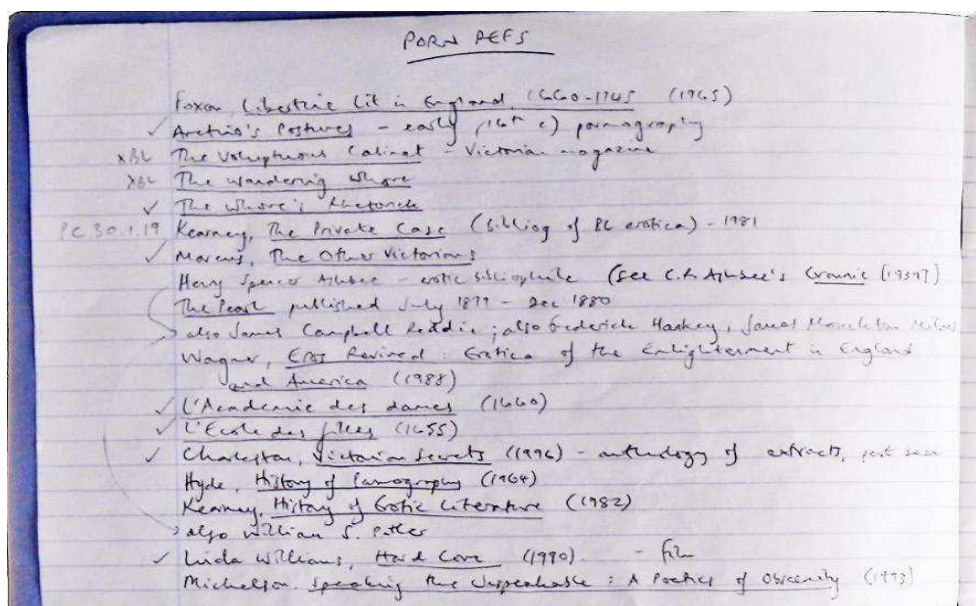 PORN REFS
Foxon, Libertine Lit in England, 1660-1745 (1965)
✓ Aretino's Postures - early (16th c) pornography
xBL The Voluptuous Cabinet - Victorian magazine
xBL The Wandering Whore
✓ The Whore's Rhetorick
PC.30.1.19 Kearney, The Private Case (bibliog of BL erotica) - 1981
✓ Marcus, The Other Victorians
Henry Spencer Ashbee - erotic bibliophile (see C.R. Ashbee's Grannie (1939?)
The Pearl published July 1879 - Dec 1880
also James Campbell Reddie; also Frederick Hankey, James Monckton Milnes
Wagner, Eros Revived: Erotica of the Enlightenment in England
and America (1988)
✓ L'Academie des dames (1660)
✓ L'Ecole des filles (1655)
✓ Charleston, Victorian Secrets (1996) - anthology of extracts,
Hyde, History of Pornography (1964)
Kearney, History of Erotic Literature (1982)
also William S. Potter
✓ Linda Williams, Hard Core (1990). - film
Michelson. Speaking the Unspeakable: A Poetics of Obscenity (1993)